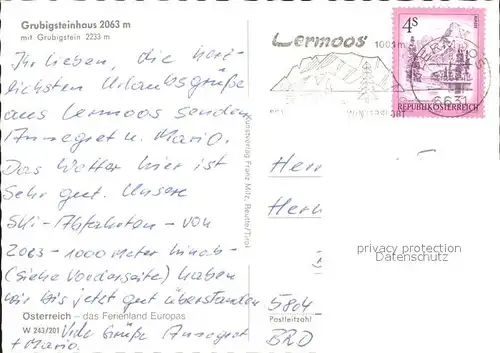 Grubigsteinhaus 2063 m
mit Grubigstein 2233 m
Ihr Lieben, die herz-
lichsten Urlaubsgrüße
aus Lermoos senden
Annegret u. Mario.
Das Wetter hier ist
Sehr gut. Unsere
Ski-Abfahrten - von
2063 - 1000 Meter hinab -
(siehe Vorderseite) haben
wir bis jetzt gut überstanden
Österreich – das Ferienland Europas
W 243/201 Viele Grüße Annegret
+ Mario.
Kunstverlag Franz Milz, Reutte/Tirol
Lermoos
1004 m
WINTERSPORT
4S
REPUBLIK ÖSTERREICH
LERMOOS
6631
Herrn
Her
privacy protection
Datenschutz
5804
Postleitzahl
BRD